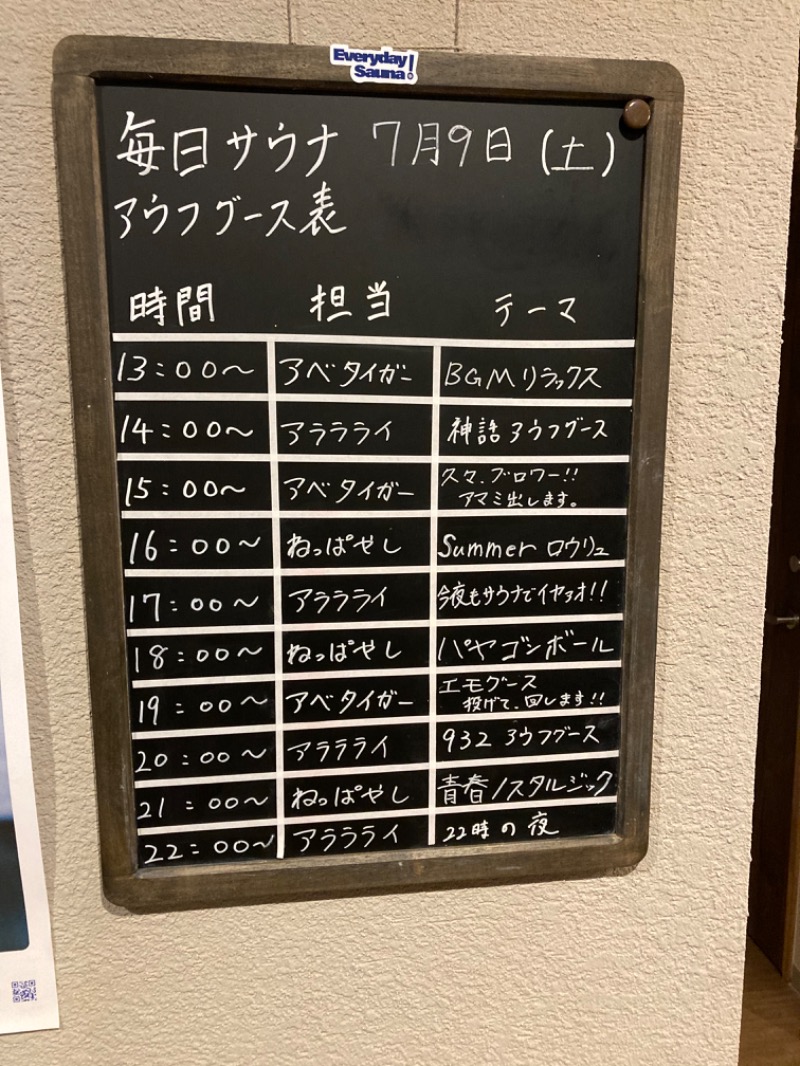 Everyday
Sauna!
毎日サウナ 7月9日(土)
アウフグース表
時間 担当 テーマ
13:00〜 アベタイガー BGMリラックス
14:00〜 アラララライ 神話アウフグース
15:00〜 アベタイガー 久々、ブロワー!!
アマミ出します。
16:00〜 ねっぱやし Summerロウリュ
17:00〜 アララライ 今夜もサウナでイヤァオ!!
18:00〜 ねっぱやし パヤゴンボール
19:00〜 アベタイガー エモグース
投げて、回します!!
20:00〜 アララライ 932アウフグース
21:00〜 ねっぱやし 青春ノスタルジック
22:00〜 アララライ 22時の夜